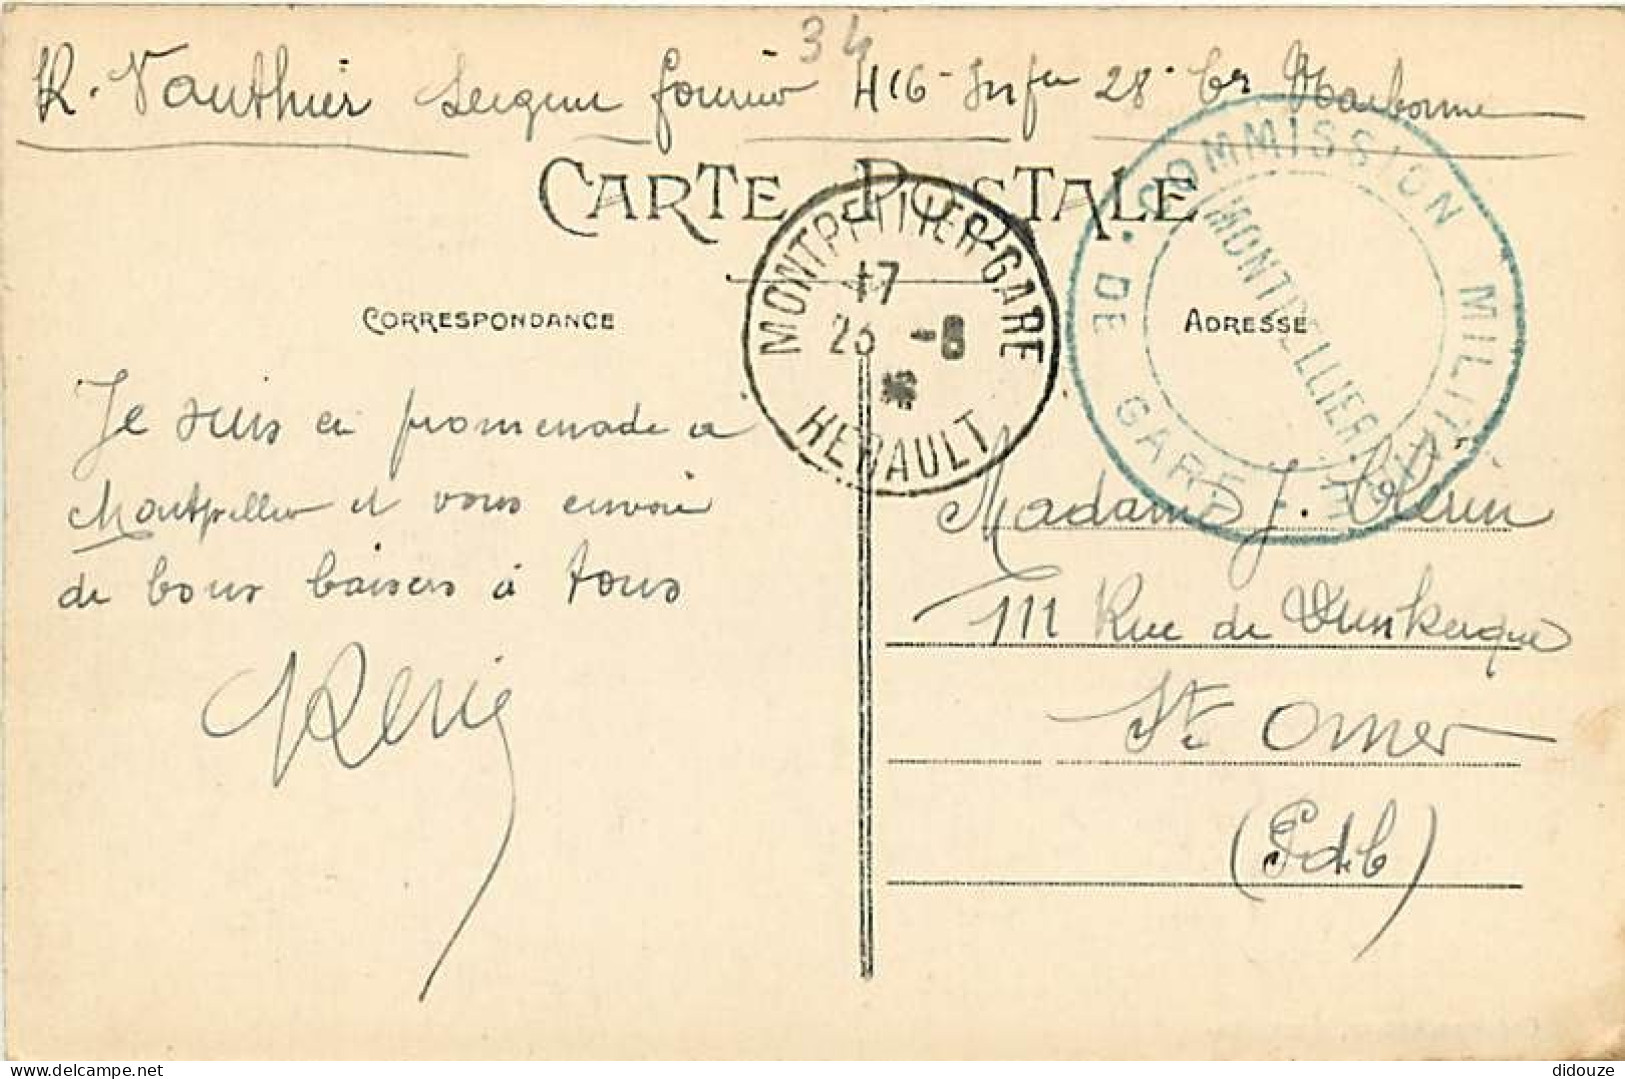 34
R. Vauthier Sergent fourrier 416 Infie 28e Cie Narbonne
CARTE POSTALE
MONTPELLIER-GARE
17
23 -8
16
HERAULT
COMMISSION MILITAIRE
DE GARE
MONTPELLIER
CORRESPONDANCE
ADRESSE
Je suis en promenade a
Montpellier et vous envoie
de bons baisers à tous
René
Madame J.
111 Rue de Dunkerque
St Omer
(PdC)
didouze
Delcampe.net